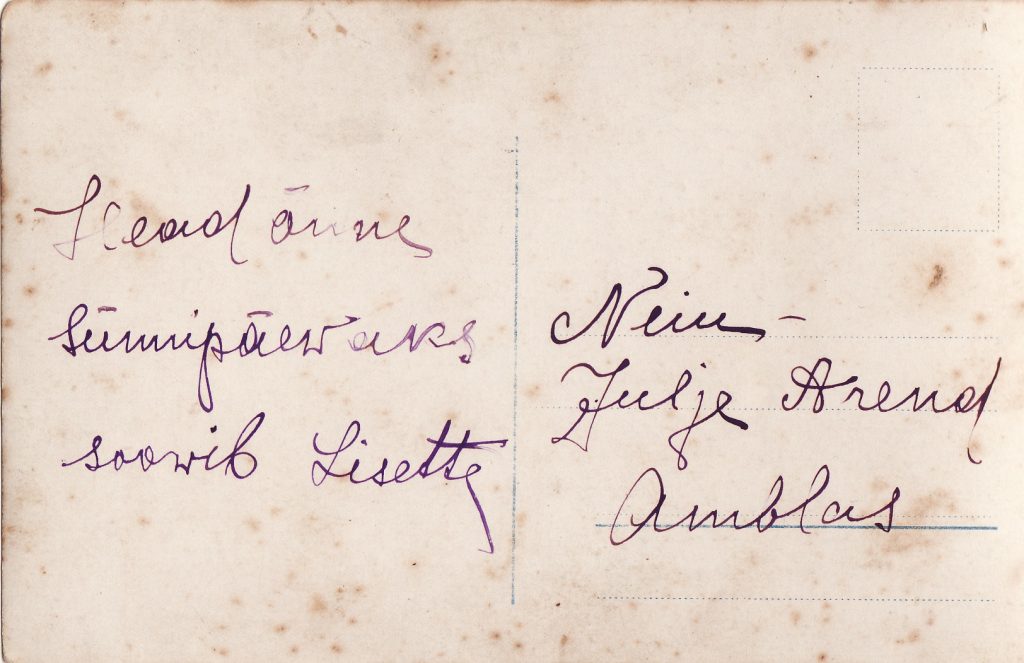 Head õnne
sünnipäewaks
soowib Lisette
Neiu
Julje Arend
Amblas